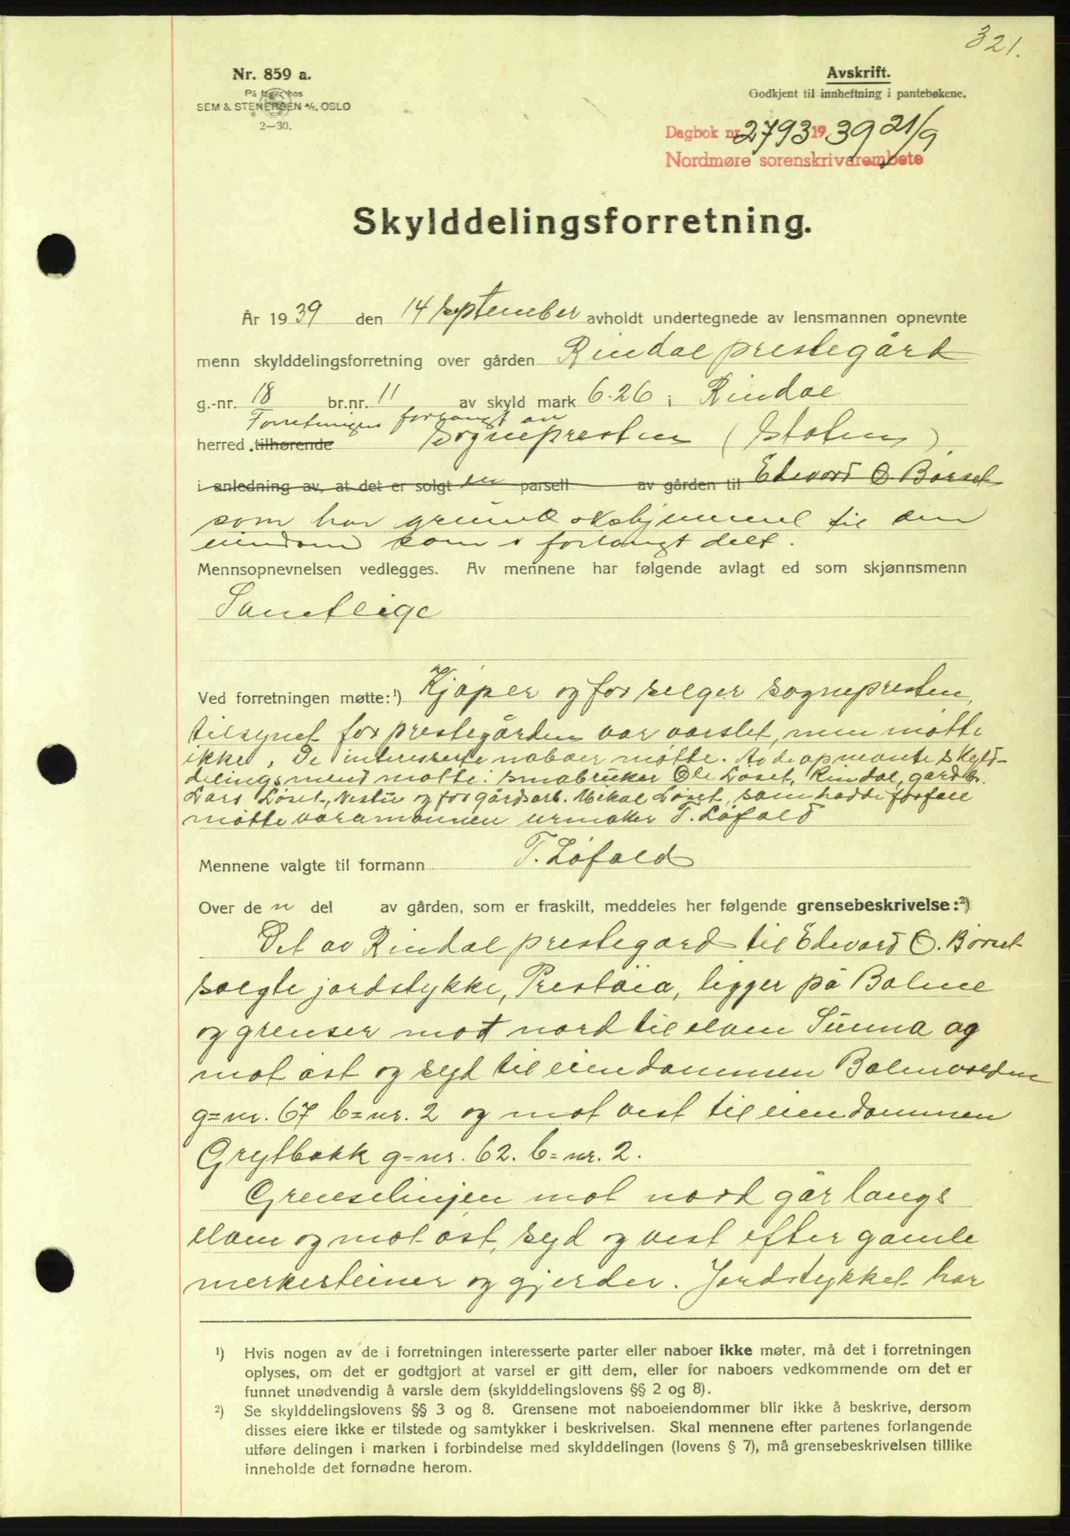 321.
Nr. 859 a.
På lager hos
SEM & STENERSEN A/S, OSLO
2—30.
Avskrift.
Godkjent til innheftning i pantebøkene.
Dagbok nr. 2793 1939 21/9
Nordmøre sorenskrivarembete
Skylddelingsforretning.
År 1939 den 14 September avholdt undertegnede av lensmannen opnevnte
menn skylddelingsforretning over gården Rindal prestegård
g.-nr. 18 br.nr. 11 av skyld mark 6.26 i Rindal
Forretningen forlangt av
herred tilhørende Sognepresten (Staten)
i anledning av, at det er solgt en parsell av gården til Edvard O. Børset
som har grunnbokshjemmel til den
eiendom som er forlangt delt.
Mennsopnevnelsen vedlegges. Av mennene har følgende avlagt ed som skjønnsmenn
Samtlige
Ved forretningen møtte:¹) Kjøper og for selger sognepresten,
tilsynet for prestegården var varslet, men møtte
ikke. De interesserte naboer møtte. Av de opnevnte skyld-
delingsmenn møtte: småbruker Ole Løset, Rindal, gardbr.
Lars Løset, Nestu og for gårdsarb. Mikal Løset, som hadde forfall
møtte varamannen urmaker T. Løfald
Mennene valgte til formann T. Løfald
Over den del av gården, som er fraskilt, meddeles her følgende grensebeskrivelse:²)
Det av Rindal prestegard til Edvard O. Børset
solgte jordstykke, Prestøia, ligger på Bolme
og grenser mot nord til elven Surna og
mot øst og syd til eiendommen Bolmvolden
g=nr. 67 b=nr. 2 og mot vest til eiendommen
Grytbakk g=nr. 62. b=nr. 2.
Grenselinjen mot nord går langs
elven og mot øst, syd og vest efter gamle
merkesteiner og gjerder. Jordstykket har
¹) Hvis nogen av de i forretningen interesserte parter eller naboer ikke møter, må det i forretningen
oplyses, om det er godtgjort at varsel er gitt dem, eller for naboers vedkommende om det er
funnet unødvendig å varsle dem (skylddelingslovens §§ 2 og 8).
²) Se skylddelingslovens §§ 3 og 8. Grensene mot naboeiendommer blir ikke å beskrive, dersom
disses eiere ikke er tilstede og samtykker i beskrivelsen. Skal mennene efter partenes forlangende
utføre delingen i marken i forbindelse med skylddelingen (lovens § 7), må grensebeskrivelsen tillike
inneholde det fornødne herom.